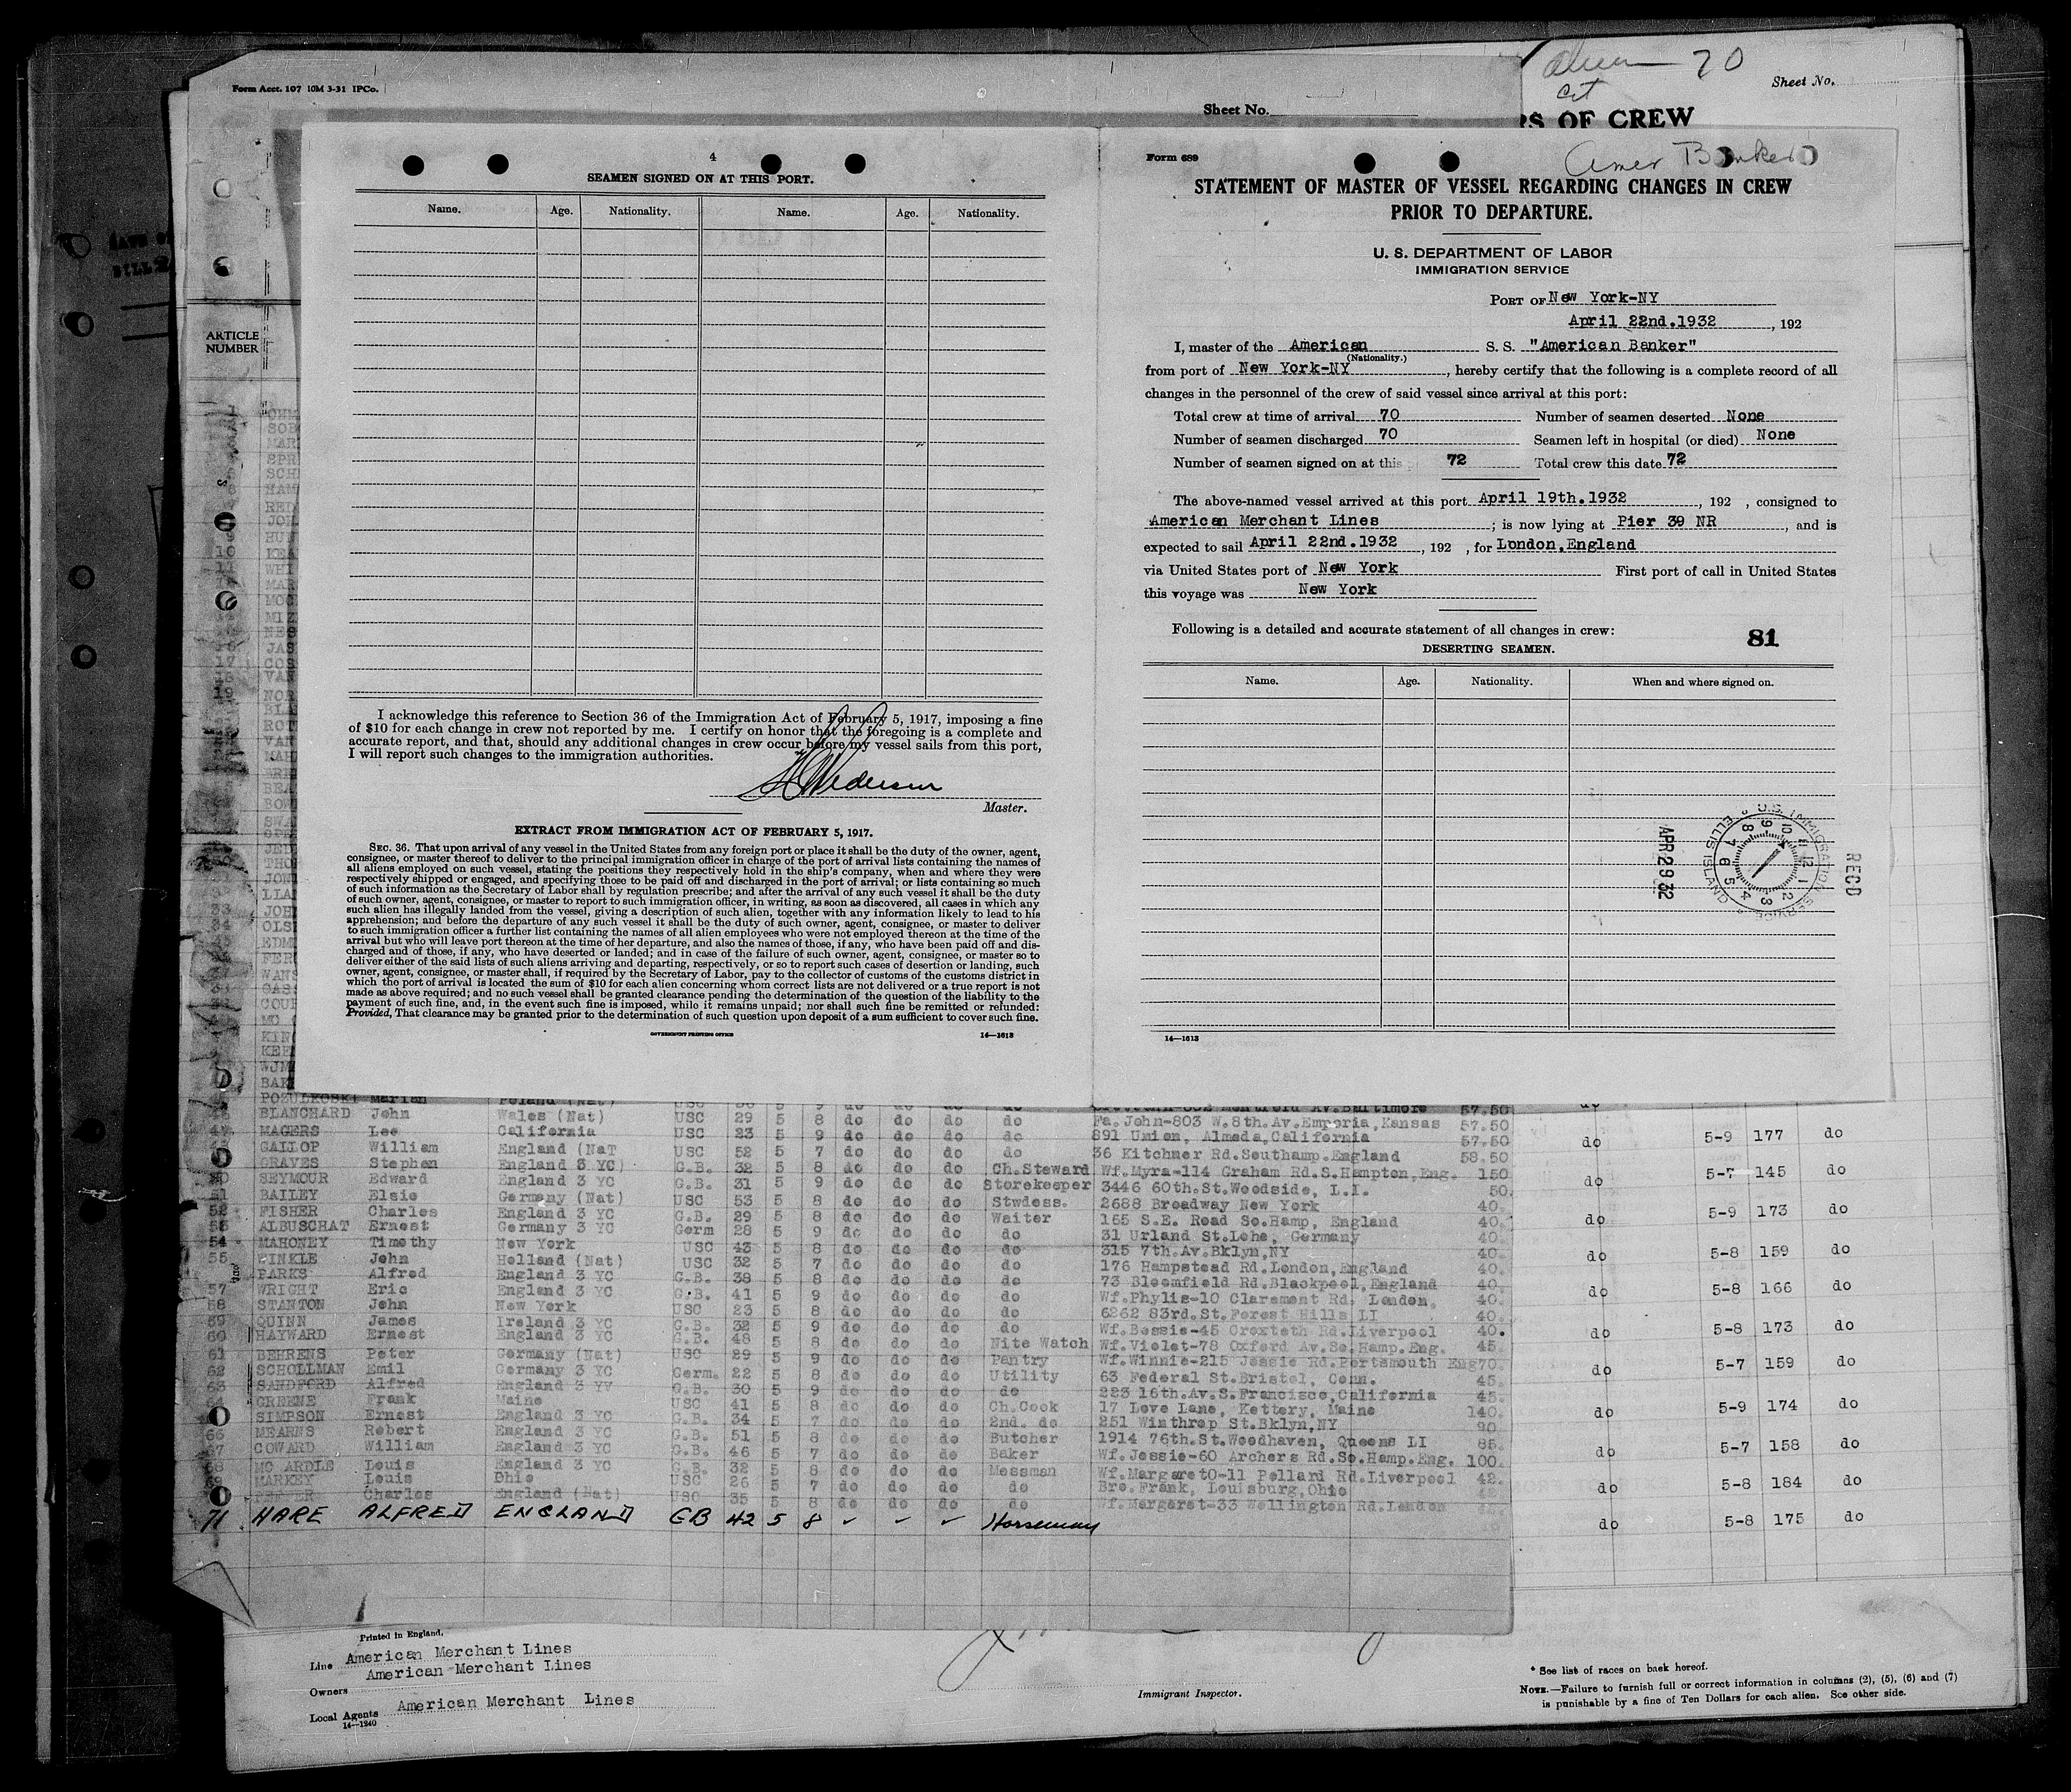 Form Acct. 107 10M 3-31 IPCo.
Sheet No.
70
Sheet No.
RS OF CREW
ARTICLE
NUMBER
4
SEAMEN SIGNED ON AT THIS PORT.
Name. Age. Nationality. Name. Age. Nationality.
I acknowledge this reference to Section 36 of the Immigration Act of February 5, 1917, imposing a fine
of $10 for each change in crew not reported by me. I certify on honor that the foregoing is a complete and
accurate report, and that, should any additional changes in crew occur before my vessel sails from this port,
I will report such changes to the immigration authorities.
Master.
EXTRACT FROM IMMIGRATION ACT OF FEBRUARY 5, 1917.
SEC. 36. That upon arrival of any vessel in the United States from any foreign port or place it shall be the duty of the owner, agent,
consignee, or master thereof to deliver to the principal immigration officer in charge of the port of arrival lists containing the names of
all aliens employed on such vessel, stating the positions they respectively hold in the ship's company, when and where they were
respectively shipped or engaged, and specifying those to be paid off and discharged in the port of arrival; or lists containing so much
of such information as the Secretary of Labor shall by regulation prescribe; and after the arrival of any such vessel it shall be the duty
of such owner, agent, consignee, or master to report to such immigration officer, in writing, as soon as discovered, all cases in which any
such alien has illegally landed from the vessel, giving a description of such alien, together with any information likely to lead to his
apprehension; and before the departure of any such vessel it shall be the duty of such owner, agent, consignee, or master to deliver
to such immigration officer a further list containing the names of all alien employees who were not employed thereon at the time of the
arrival but who will leave port thereon at the time of her departure, and also the names of those, if any, who have been paid off and dis-
charged and of those, if any, who have deserted or landed; and in case of the failure of such owner, agent, consignee, or master so to
deliver either of the said lists of such aliens arriving and departing, respectively, or so to report such cases of desertion or landing, such
owner, agent, consignee, or master shall, if required by the Secretary of Labor, pay to the collector of customs of the customs district in
which the port of arrival is located the sum of $10 for each alien concerning whom correct lists are not delivered or a true report is not
made as above required; and no such vessel shall be granted clearance pending the determination of the question of the liability to the
payment of such fine, and, in the event such fine is imposed, while it remains unpaid; nor shall such fine be remitted or refunded:
Provided, That clearance may be granted prior to the determination of such question upon deposit of a sum sufficient to cover such fine.
GOVERNMENT PRINTING OFFICE 14—1613
Form 689
Amer Banker
STATEMENT OF MASTER OF VESSEL REGARDING CHANGES IN CREW
PRIOR TO DEPARTURE.
U. S. DEPARTMENT OF LABOR
IMMIGRATION SERVICE
PORT OF New York-NY
April 22nd.1932, 192
I, master of the American S. S. "American Banker"
(Nationality.)
from port of New York-NY, hereby certify that the following is a complete record of all
changes in the personnel of the crew of said vessel since arrival at this port:
Total crew at time of arrival 70 Number of seamen deserted None
Number of seamen discharged 70 Seamen left in hospital (or died) None
Number of seamen signed on at this 72 Total crew this date 72
The above-named vessel arrived at this port April 19th.1932, 192 , consigned to
American Merchant Lines; is now lying at Pier 39 NR, and is
expected to sail April 22nd.1932, 192 , for London,England
via United States port of New York First port of call in United States
this voyage was New York
Following is a detailed and accurate statement of all changes in crew: 81
DESERTING SEAMEN.
Name. Age. Nationality. When and where signed on.
U.S. IMMIGRATION SERVICE ELLIS ISLAND
APR 29 32
RECD
14—1613
BLANCHARD John Wales (Nat) USC 29 5 9 do do do do Fa. John-803 W.8th.Av.Emporia,Kansas 57.50
MAGERS Lee California USC 23 5 9 do do do do 891 Union, Almeda,California 57.50 do 5-9 177 do
GALLOP William England (Nat USC 52 5 7 do do do do 36 Kitchner Rd.Southamp.England 58.50
GRAVES Stephen England 3 YC) G.B. 32 5 8 do do do Ch.Steward Wf.Myra-114 Graham Rd.S.Hampton,Eng. 150 do 5-7 145 do
SEYMOUR Edward England 3 YC G.B. 31 5 9 do do do Storekeeper 3446 60th.St.Woodside, L.I. 50.
51 BAILEY Elsie Germany (Nat) USC 53 5 8 do do do Stwdess. 2688 Broadway New York 40. do 5-9 173 do
52 FISHER Charles England 3 YC G.B. 29 5 8 do do do Waiter 165 S.E. Road So.Hamp, England 40.
53 ALBUSCHAT Ernest Germany 3 YC Germ 28 5 9 do do do do 31 Urland St.Lehe, Germany 40. do 5-8 159 do
54 MAHONEY Timothy New York USC 43 5 8 do do do do 315 7th.Av.Bklyn,NY 40.
55 John Holland (Nat) USC 32 5 7 do do do do 176 Hampstead Rd.London,England 40. do 5-8 166 do
PARKS Alfred England 3 YC G.B. 38 5 8 do do do do 73 Bloomfield Rd.Blackpool,England 40.
57 WRIGHT Eric England 3 YC G.B. 41 5 9 do do do do Wf.Phylis-10 Claremont Rd. London. 40.
58 STANTON John New York USC 23 5 8 do do do do 6262 83rd.St.Forest Hills LI 40. do 5-8 173 do
59 QUINN James Ireland 3 YC G.B. 32 5 9 do do do do Wf.Bessie-45 Croxteth Rd.Liverpool 40.
60 HAYWARD Ernest England 3 YC G.B. 48 5 8 do do do Nite Watch Wf.Violet-78 Oxford Av.So.Hamp.Eng. 45. do 5-7 159 do
61 BEHRENS Peter Germany (Nat) USC 29 5 9 do do do Pantry Wf.Winnie-215 Jessie Rd.Portsmouth Eng 70.
62 SCHOLLMAN Emil Germany 3 YC Germ. 22 5 8 do do do Utility 63 Federal St.Bristol, Conn. 45.
63 SANDFORD Alfred England 3 YV G.B. 30 5 9 do do do do 223 16th.Av.S.Francisco,California 45. do 5-9 174 do
GREENE Frank Maine USC 41 5 8 do do do Ch.Cook 17 Love Lane, Kettery, Maine 140.
SIMPSON Ernest England 3 YC G.B. 34 5 7 do do do 2nd. do 251 Winthrop St.Bklyn,NY 90
66 MEARNS Robert England 3 YC G.B. 51 5 8 do do do Butcher 1914 76th.St.Woodhaven, Queens LI 85. do 5-7 158 do
67 COWARD William England 3 YC G.B. 46 5 7 do do do Baker Wf.Jessie-60 Archers Rd.So.Hamp.Eng. 100.
68 MC ARDLE Louis England 3 YC G.B. 32 5 8 do do do Messman Wf.Margaret0-11 Pollard Rd.Liverpool 42. do 5-8 184 do
MARKEY Louis Ohio USC 26 5 7 do do do do Bro.Frank, Louisburg,Ohio
Charles England (Nat) USC 35 5 8 do do do do Wf.Margaret-33 Wellington Rd.London
71 HARE ALFRED ENGLAND GB 42 5 8 ✓ ✓ ✓ Horseman do 5-8 175 do
Printed in England.
Line American Merchant Lines
American Merchant Lines
Owners
Local Agents American Merchant Lines
14—1240
Immigrant Inspector.
* See list of races on back hereof.
NOTE.—Failure to furnish full or correct information in columns (2), (5), (6) and (7)
is punishable by a fine of Ten Dollars for each alien. See other side.